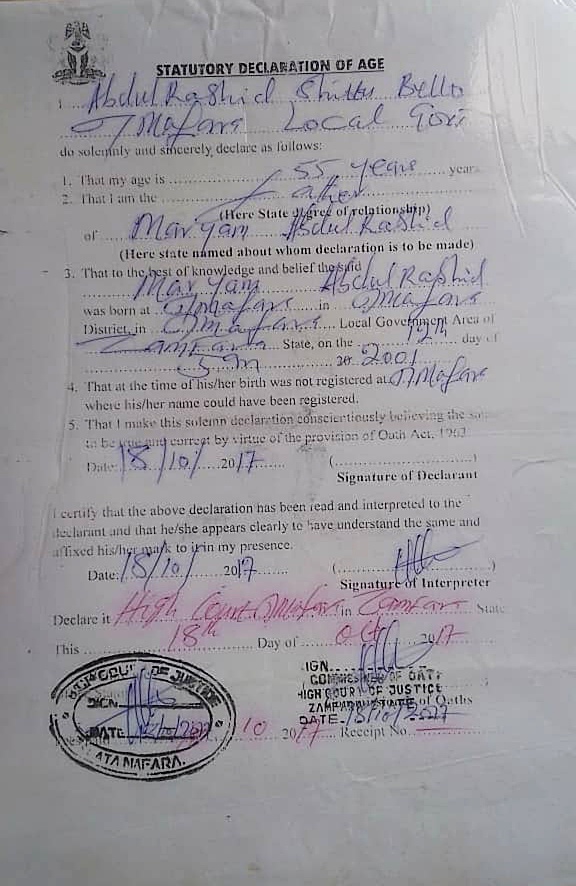 STATUTORY DECLARATION OF AGE
I Abdul Rashid Shittu Bello
T/Mafara Local Govt
do solemnly and sincerely declare as follows:
1. That my age is 55 years year
2. That I am the father
(Here State degree of relationship)
of Maryam Abdul Rashid
(Here state named about whom declaration is to be made)
3. That to the best of knowledge and belief the said
Maryam Abdul Rashid
was born at T/Mafara in T/Mafara
District, in T/Mafara Local Government Area of
Zamfara State, on the 12th day of
20 2001
4. That at the time of his/her birth was not registered at T/Mafara
where his/her name could have been registered.
5. That I make this solemn declaration conscientiously believing the
to be true and correct by virtue of the provision of Oath Act, 1963
Date: 18/10/ 2017 (....................)
Signature of Declarant
I certify that the above declaration has been read and interpreted to the
declarant and that he/she appears clearly to have understand the same and
affixed his/her mark to it in my presence.
Date: 18/10/ 2017 (....................)
Signature of Interpreter
Declare it High Court T/Mafara in Zamfara State
This 18th Day of Oct 2017
HIGH COURT OF JUSTICE
SIGN
DATE
ATA MAFARA.
SIGN
COMMISSIONER OF OATH
HIGH COURT OF JUSTICE
ZAMFARA STATE of Oaths
DATE 18/10/2017
10 2017 Receipt No.